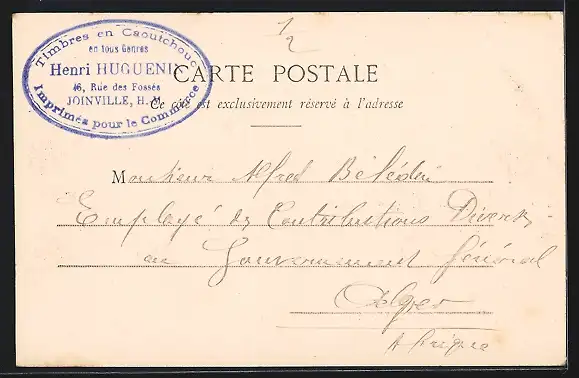 1/2
Timbres en Caoutchouc
en tous Genres
Henri HUGUENIN
46, Rue des Fossés
JOINVILLE, H. M.
Imprimés pour le Commerce
CARTE POSTALE
Ce côté est exclusivement réservé à l'adresse
Monsieur Alfred
Employé des Contributions Diverses
au Gouvernement Général
Alger
Afrique